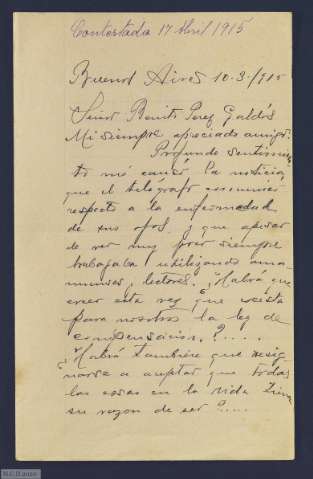 Contestada 17 Abril 1915
Buenos Aires 10-3-/915
Señor Benito Perez Galdós
Mi siempre apreciado amigo:
Profundo sentimien
to me causó la noticia
que el telégrafo anunció
respecto a la enfermedad
de sus ojos y que apesar
de ver muy poco siempre
trabajaba utilizando ama-
nuenses, lectores. ¿Habrá que
creer esta vez que exista
para nosotros la ley de
compensación?....
¿Habrá tambien que resig
narse a aceptar que todas
las cosas en la vida tienen
su razon de ser?....